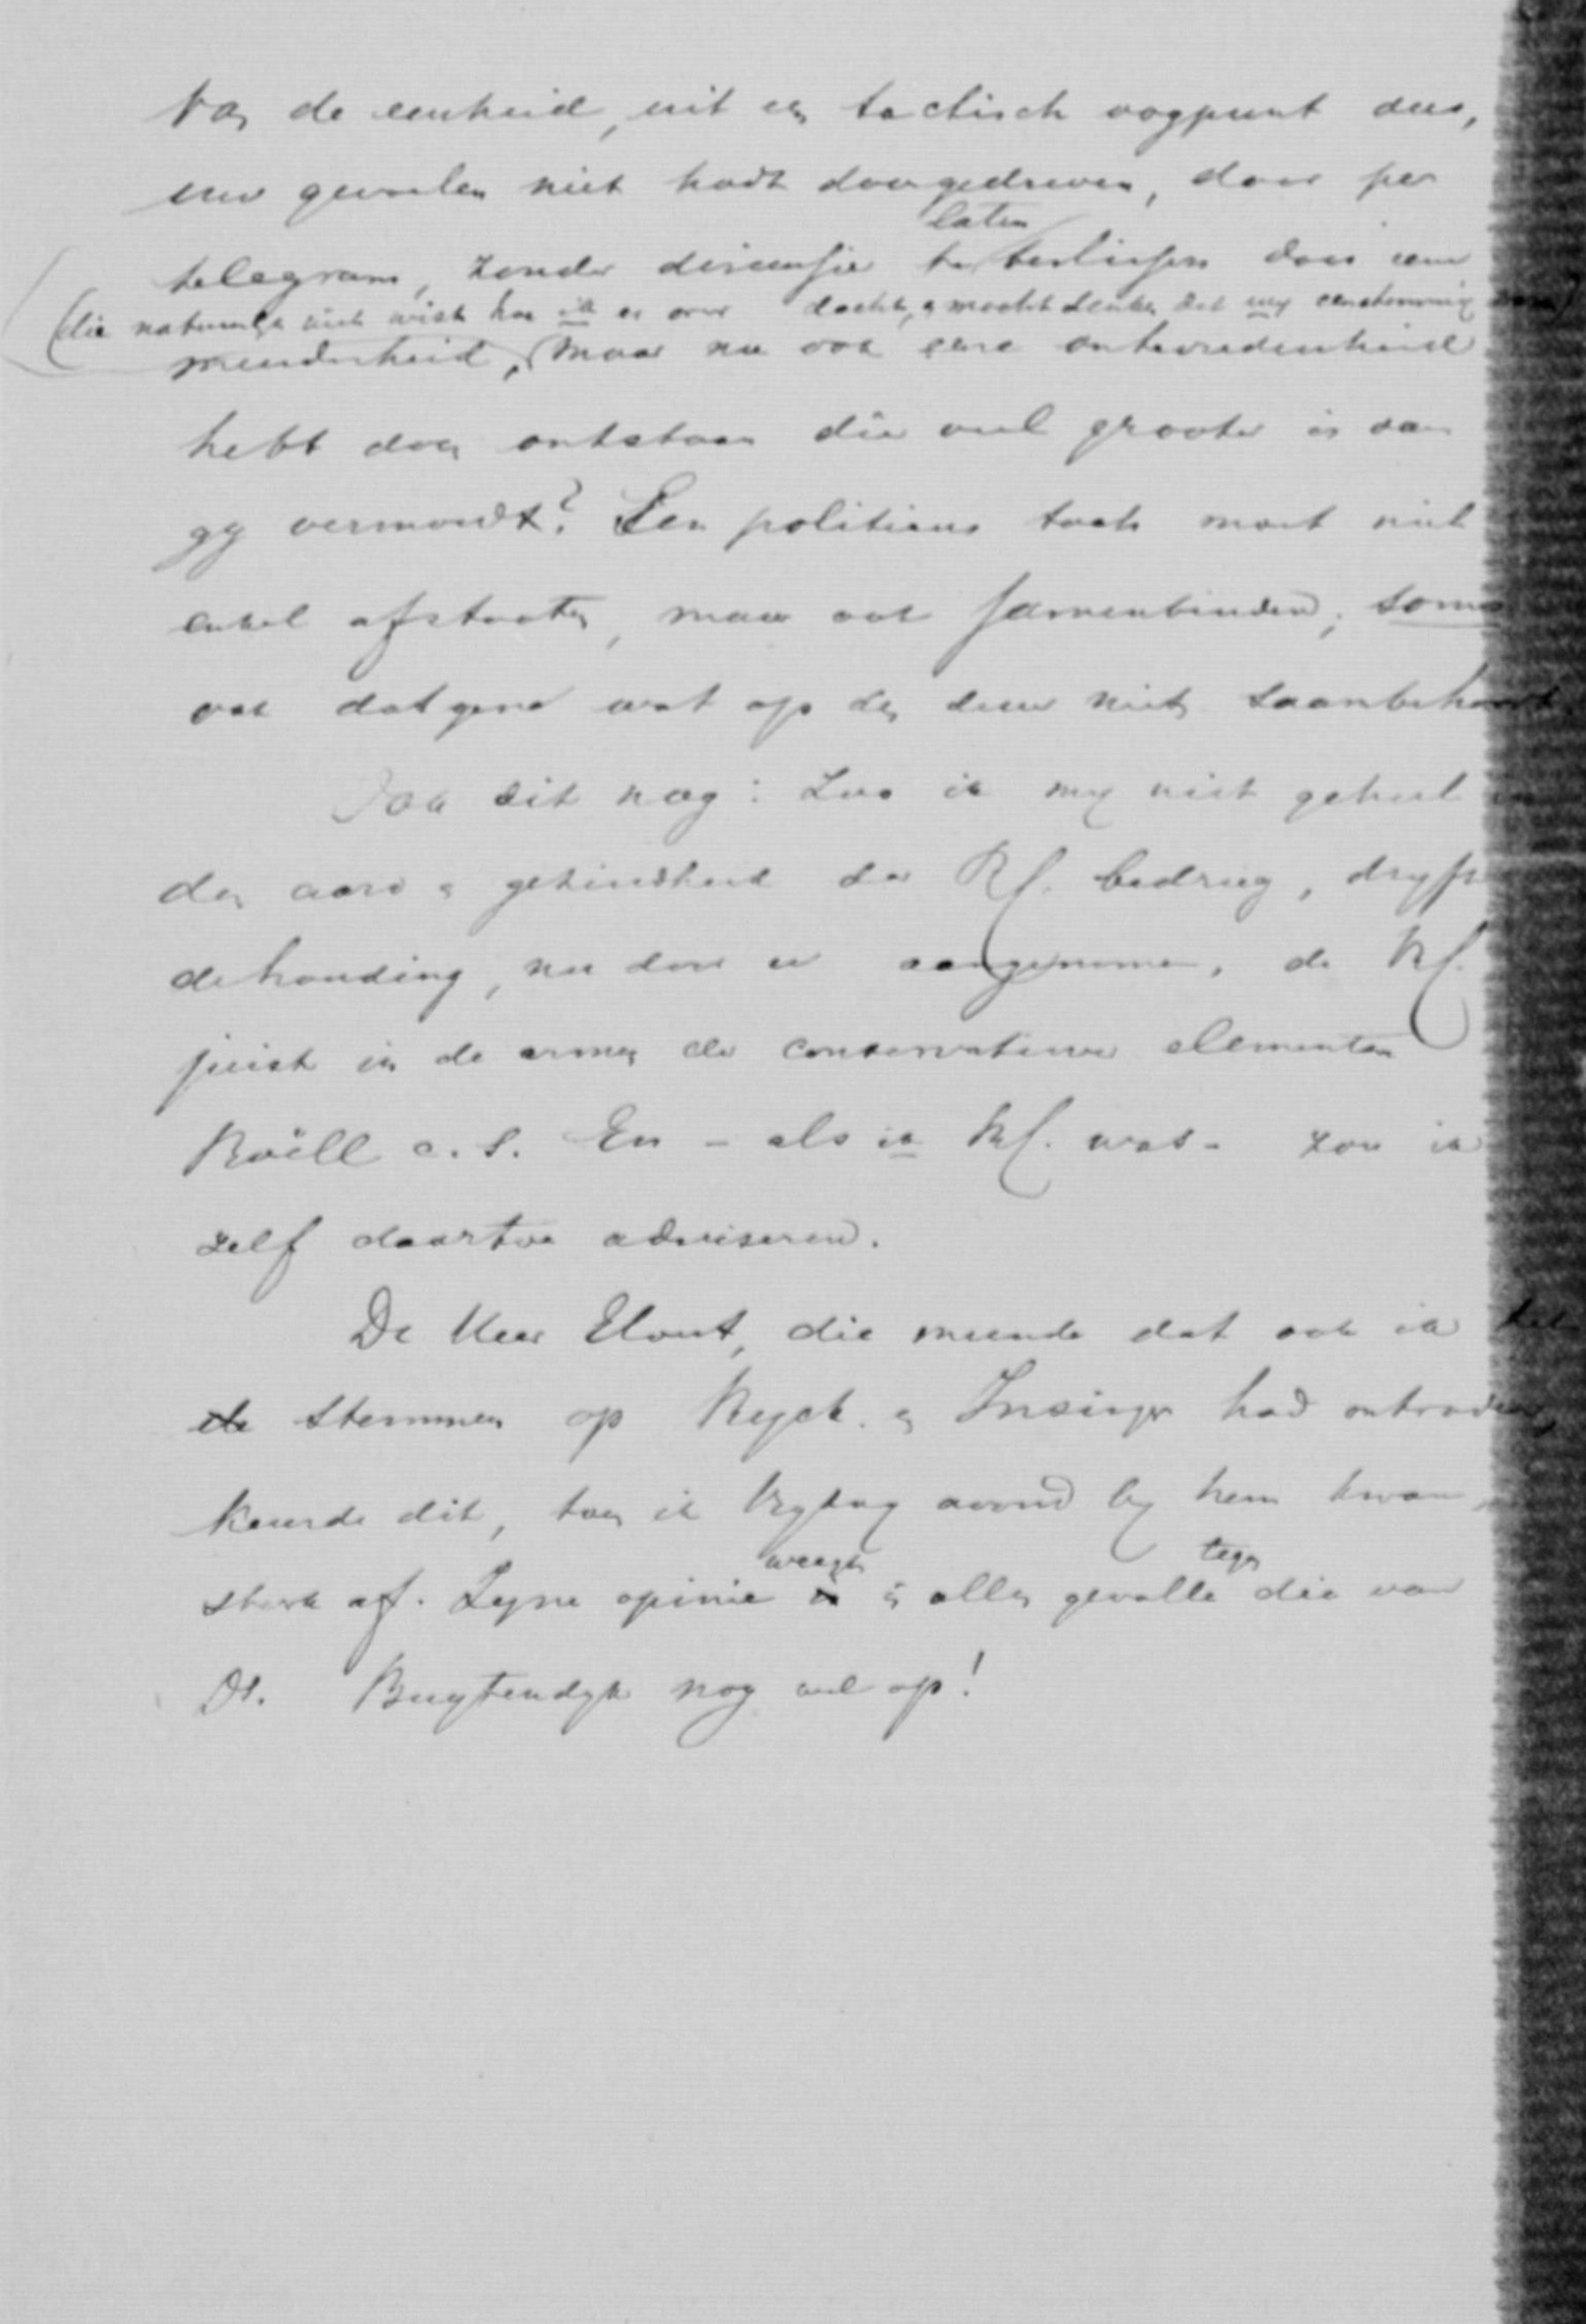 van de eenheid, uit een tactisch oogpunt dus,
uw gevoelen niet hadt doorgedreven, door per
telegram, zonder discussie te laten beslissen door eene
(die natuurlyk niet wist hoe ik er over dacht, en mocht denken dat wy eenstemmig
meerderheid, maar nu ook eene ontevredenheid
hebt doen ontstaan die veel grooter is dan
gy vermoedt? Een politicus taak moet niet
enkel afstooten, maar ook samenbinden; soms
ook datgene wat op den duur niet saambehoort
Ook dit nog: Zoo ik my niet geheel in
den aard en gezindheid der Rf. bedrieg, dryft
de houding, nu door u aangenomen, de Rf.
juist in de armen der conservatieve elementen
Roëll c.s. En - als ik Rf. was - zou ik
zelf daartoe adviseren.
De Heer Elout, die meende dat ook ik het
stemmen op Reyck. en Insinger had ontraden,
keurde dit, toen ik Vrydag avond by hem kwam,
sterk af. Zyne opinie weegt in alle gevalle tegen die van
Ds. Buytendyk nog wel op!